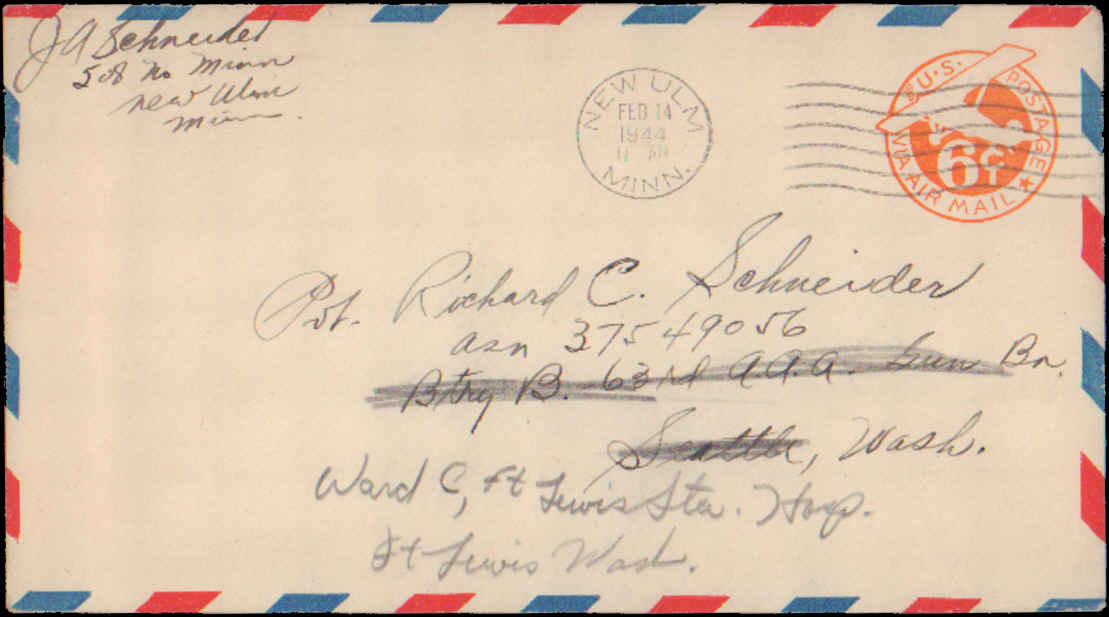 J A Schneider
508 No Minn
New Ulm
Minn.
NEW ULM
FEB 14
1944
MINN.
U.S. POSTAGE
6¢
VIA AIR MAIL
Pvt. Richard C. Schneider
asn 37549056
Btry B. 63rd A.A.A. Gun Bn.
Seattle, Wash.
Ward C, Ft Lewis Sta. Hosp.
Ft Lewis Wash.